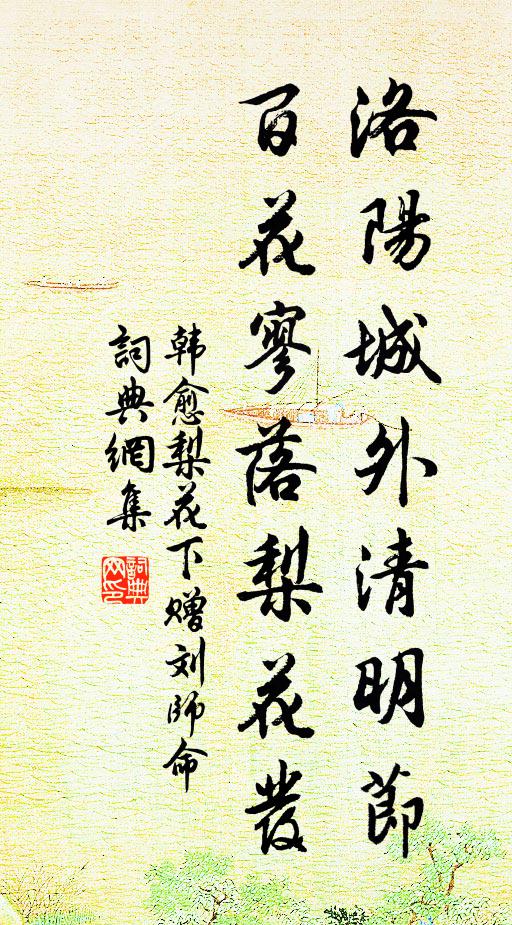 洛陽城外清明節
百花寥落梨花發
韩愈梨花下赠刘師命
詞典網集
詞典网印